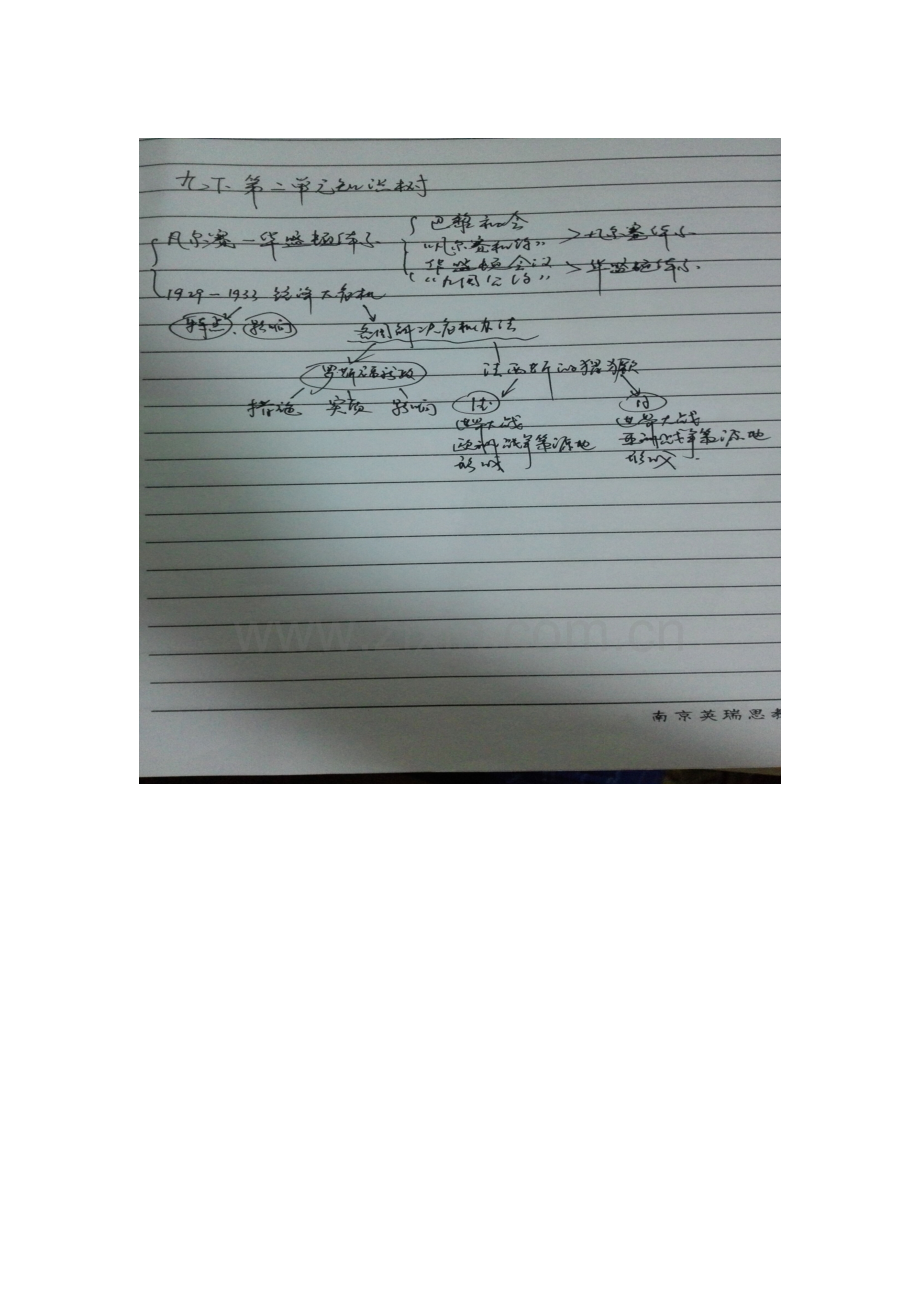 九下第二单元知识树
凡尔赛—华盛顿体系
巴黎和会
"凡尔赛和约" > 凡尔赛体系
华盛顿会议
"九国公约" > 华盛顿体系
1929—1933 经济大危机
特点、影响
各国解决危机办法
罗斯福新政
法西斯的猖獗
措施 实质 影响
德
日
世界大战
欧洲战争策源地
形成
世界大战
亚洲战争策源地
形成
www.zixin.com.cn
南京英瑞思